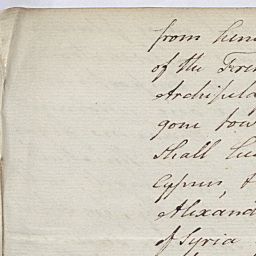 from hen
of the Fre
Archipela
gone tow
shall
Cyprus,
Alexand
of Syria